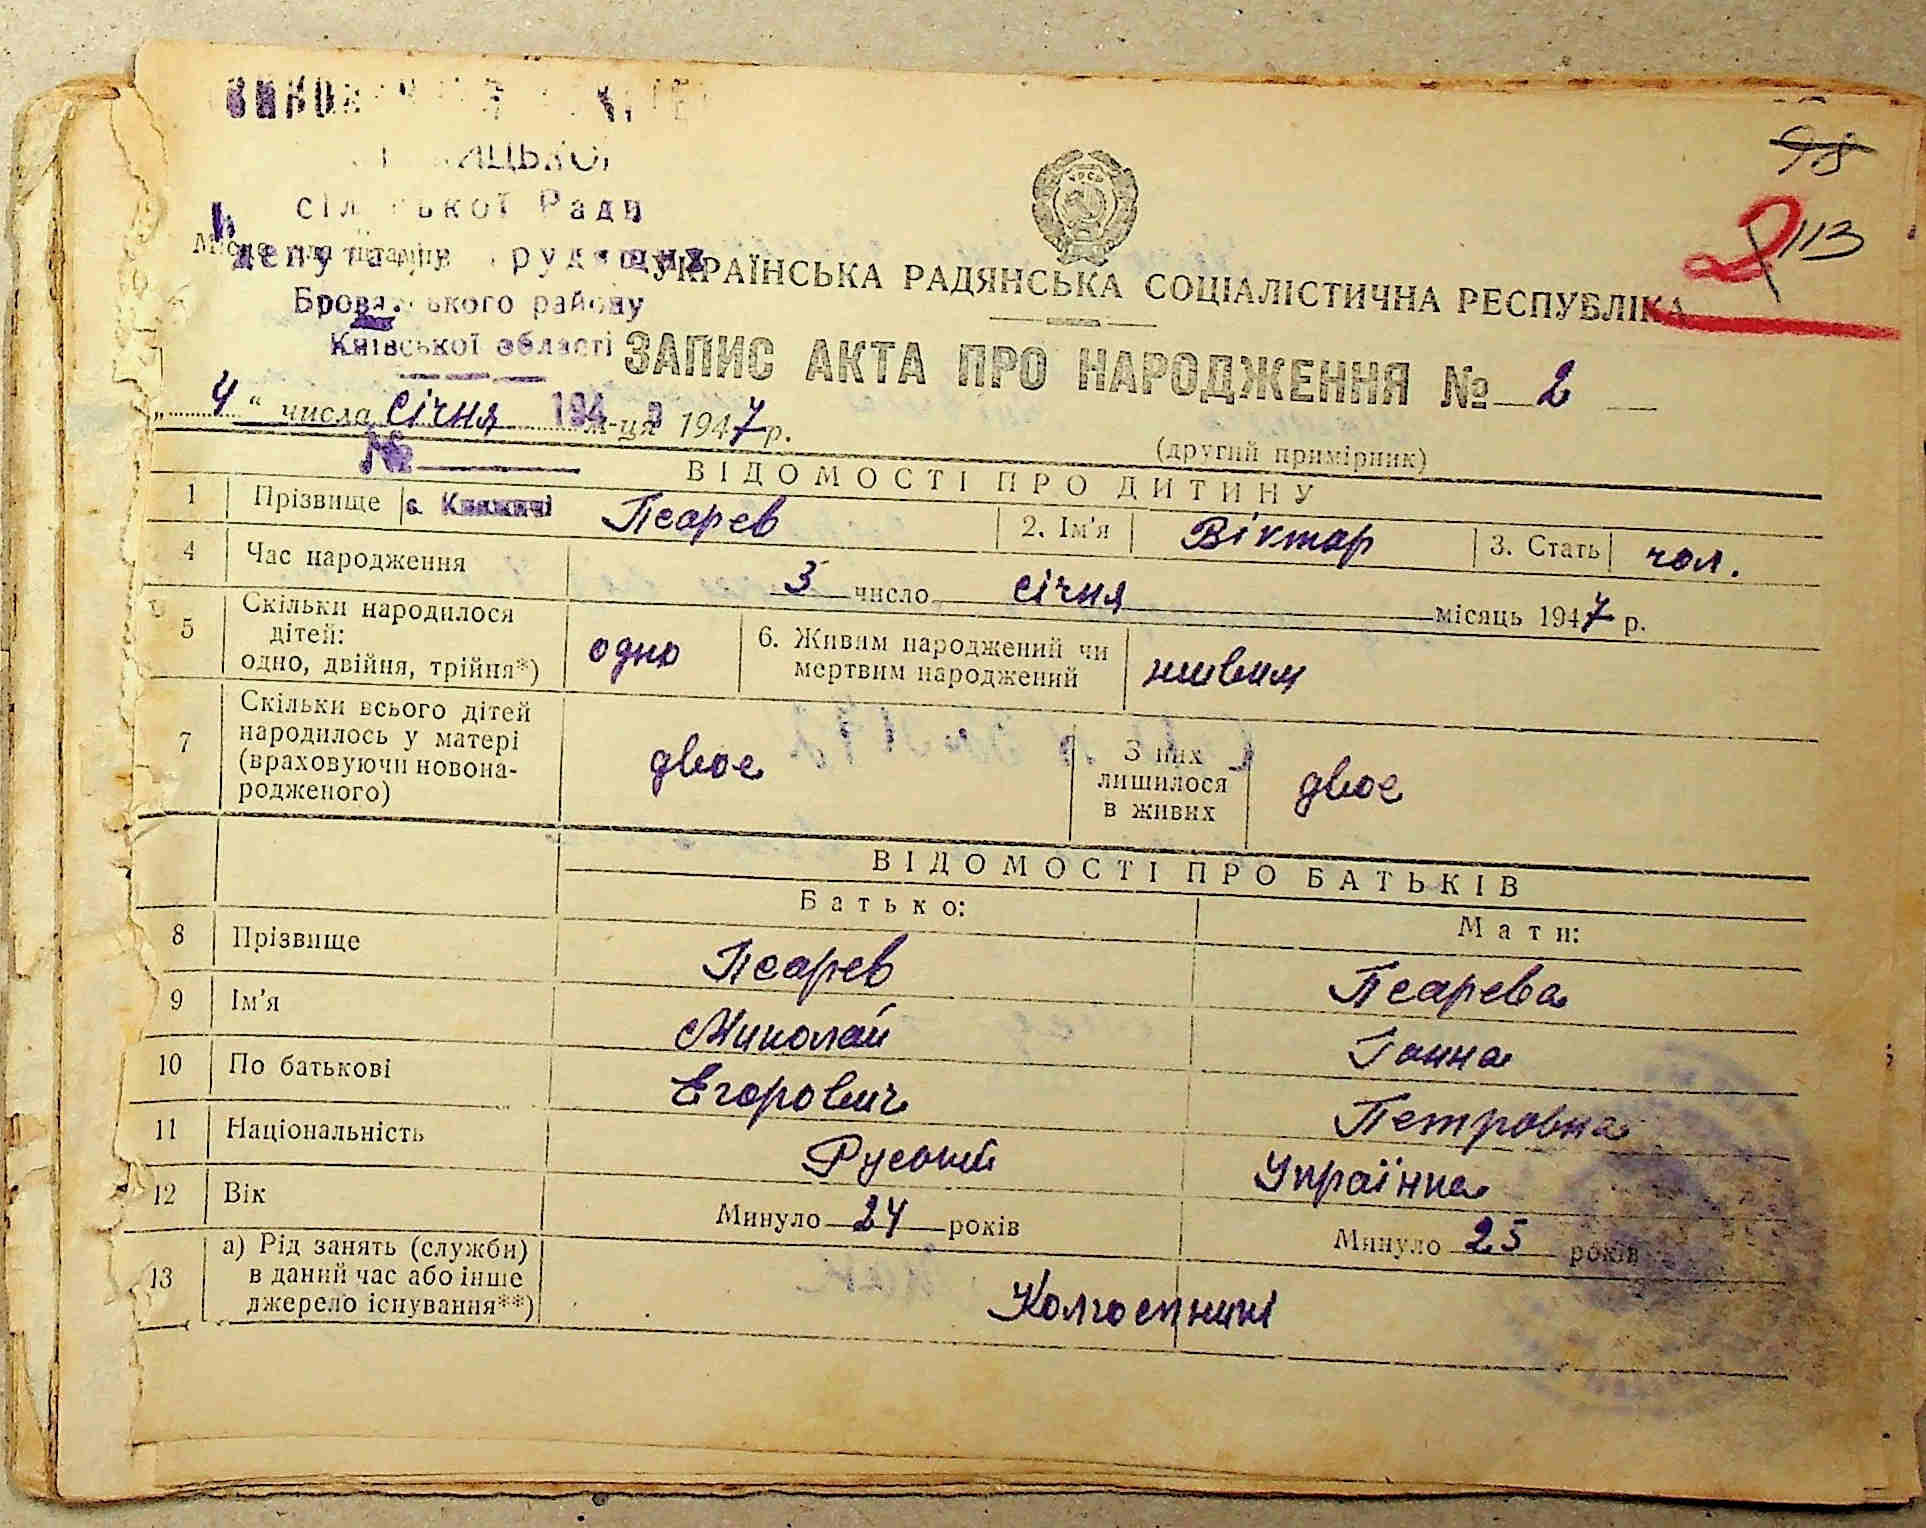 98
2 113
сільської Ради
Місце для штампу
депутатів трудящих
Броварського району
Київської області
УКРАЇНСЬКА РАДЯНСЬКА СОЦІАЛІСТИЧНА РЕСПУБЛІКА
ЗАПИС АКТА ПРО НАРОДЖЕННЯ № 2
„4“ числа січня м-ця 1947 р.
194
(другий примірник)
№
ВІДОМОСТІ ПРО ДИТИНУ
1 Прізвище с. Княжичі Псарев 2. Ім'я Віктар 3. Стать чол.
4 Час народження 3 число січня місяць 1947 р.
5 Скільки народилося дітей: одно, двійня, трійня*) одно 6. Живим народжений чи мертвим народжений живим
7 Скільки всього дітей народилось у матері (враховуючи новонародженого) двое З них лишилося в живих двое
ВІДОМОСТІ ПРО БАТЬКІВ
Батько: Мати:
8 Прізвище Псарев Псарева
9 Ім'я Миколай Ганна
10 По батькові Егорович Петровна
11 Національність Руский Українка
12 Вік Минуло 24 років Минуло 25 років
13 а) Рід занять (служби) в даний час або інше джерело існування**) Колгоспникі